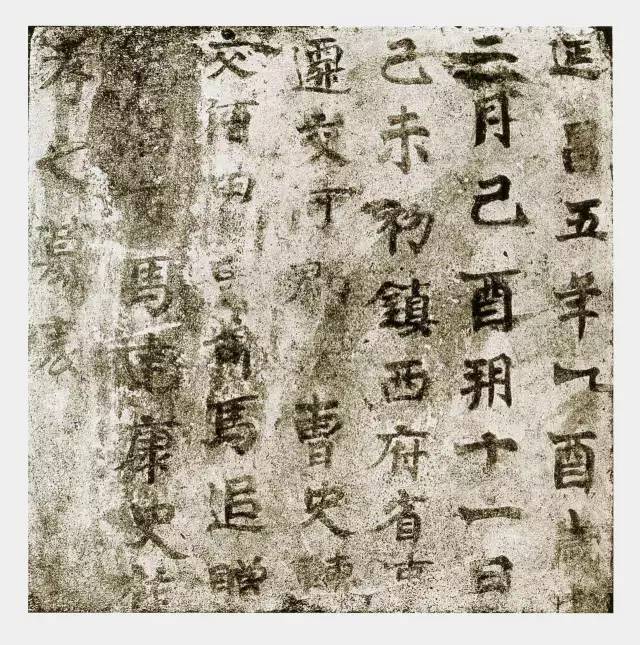 延昌五年乙酉歲
二月己酉朔十一日
己未初鎮西府省事
遷交河郡曹史轉
交河田曹司馬追贈
司馬建康史
之墓表